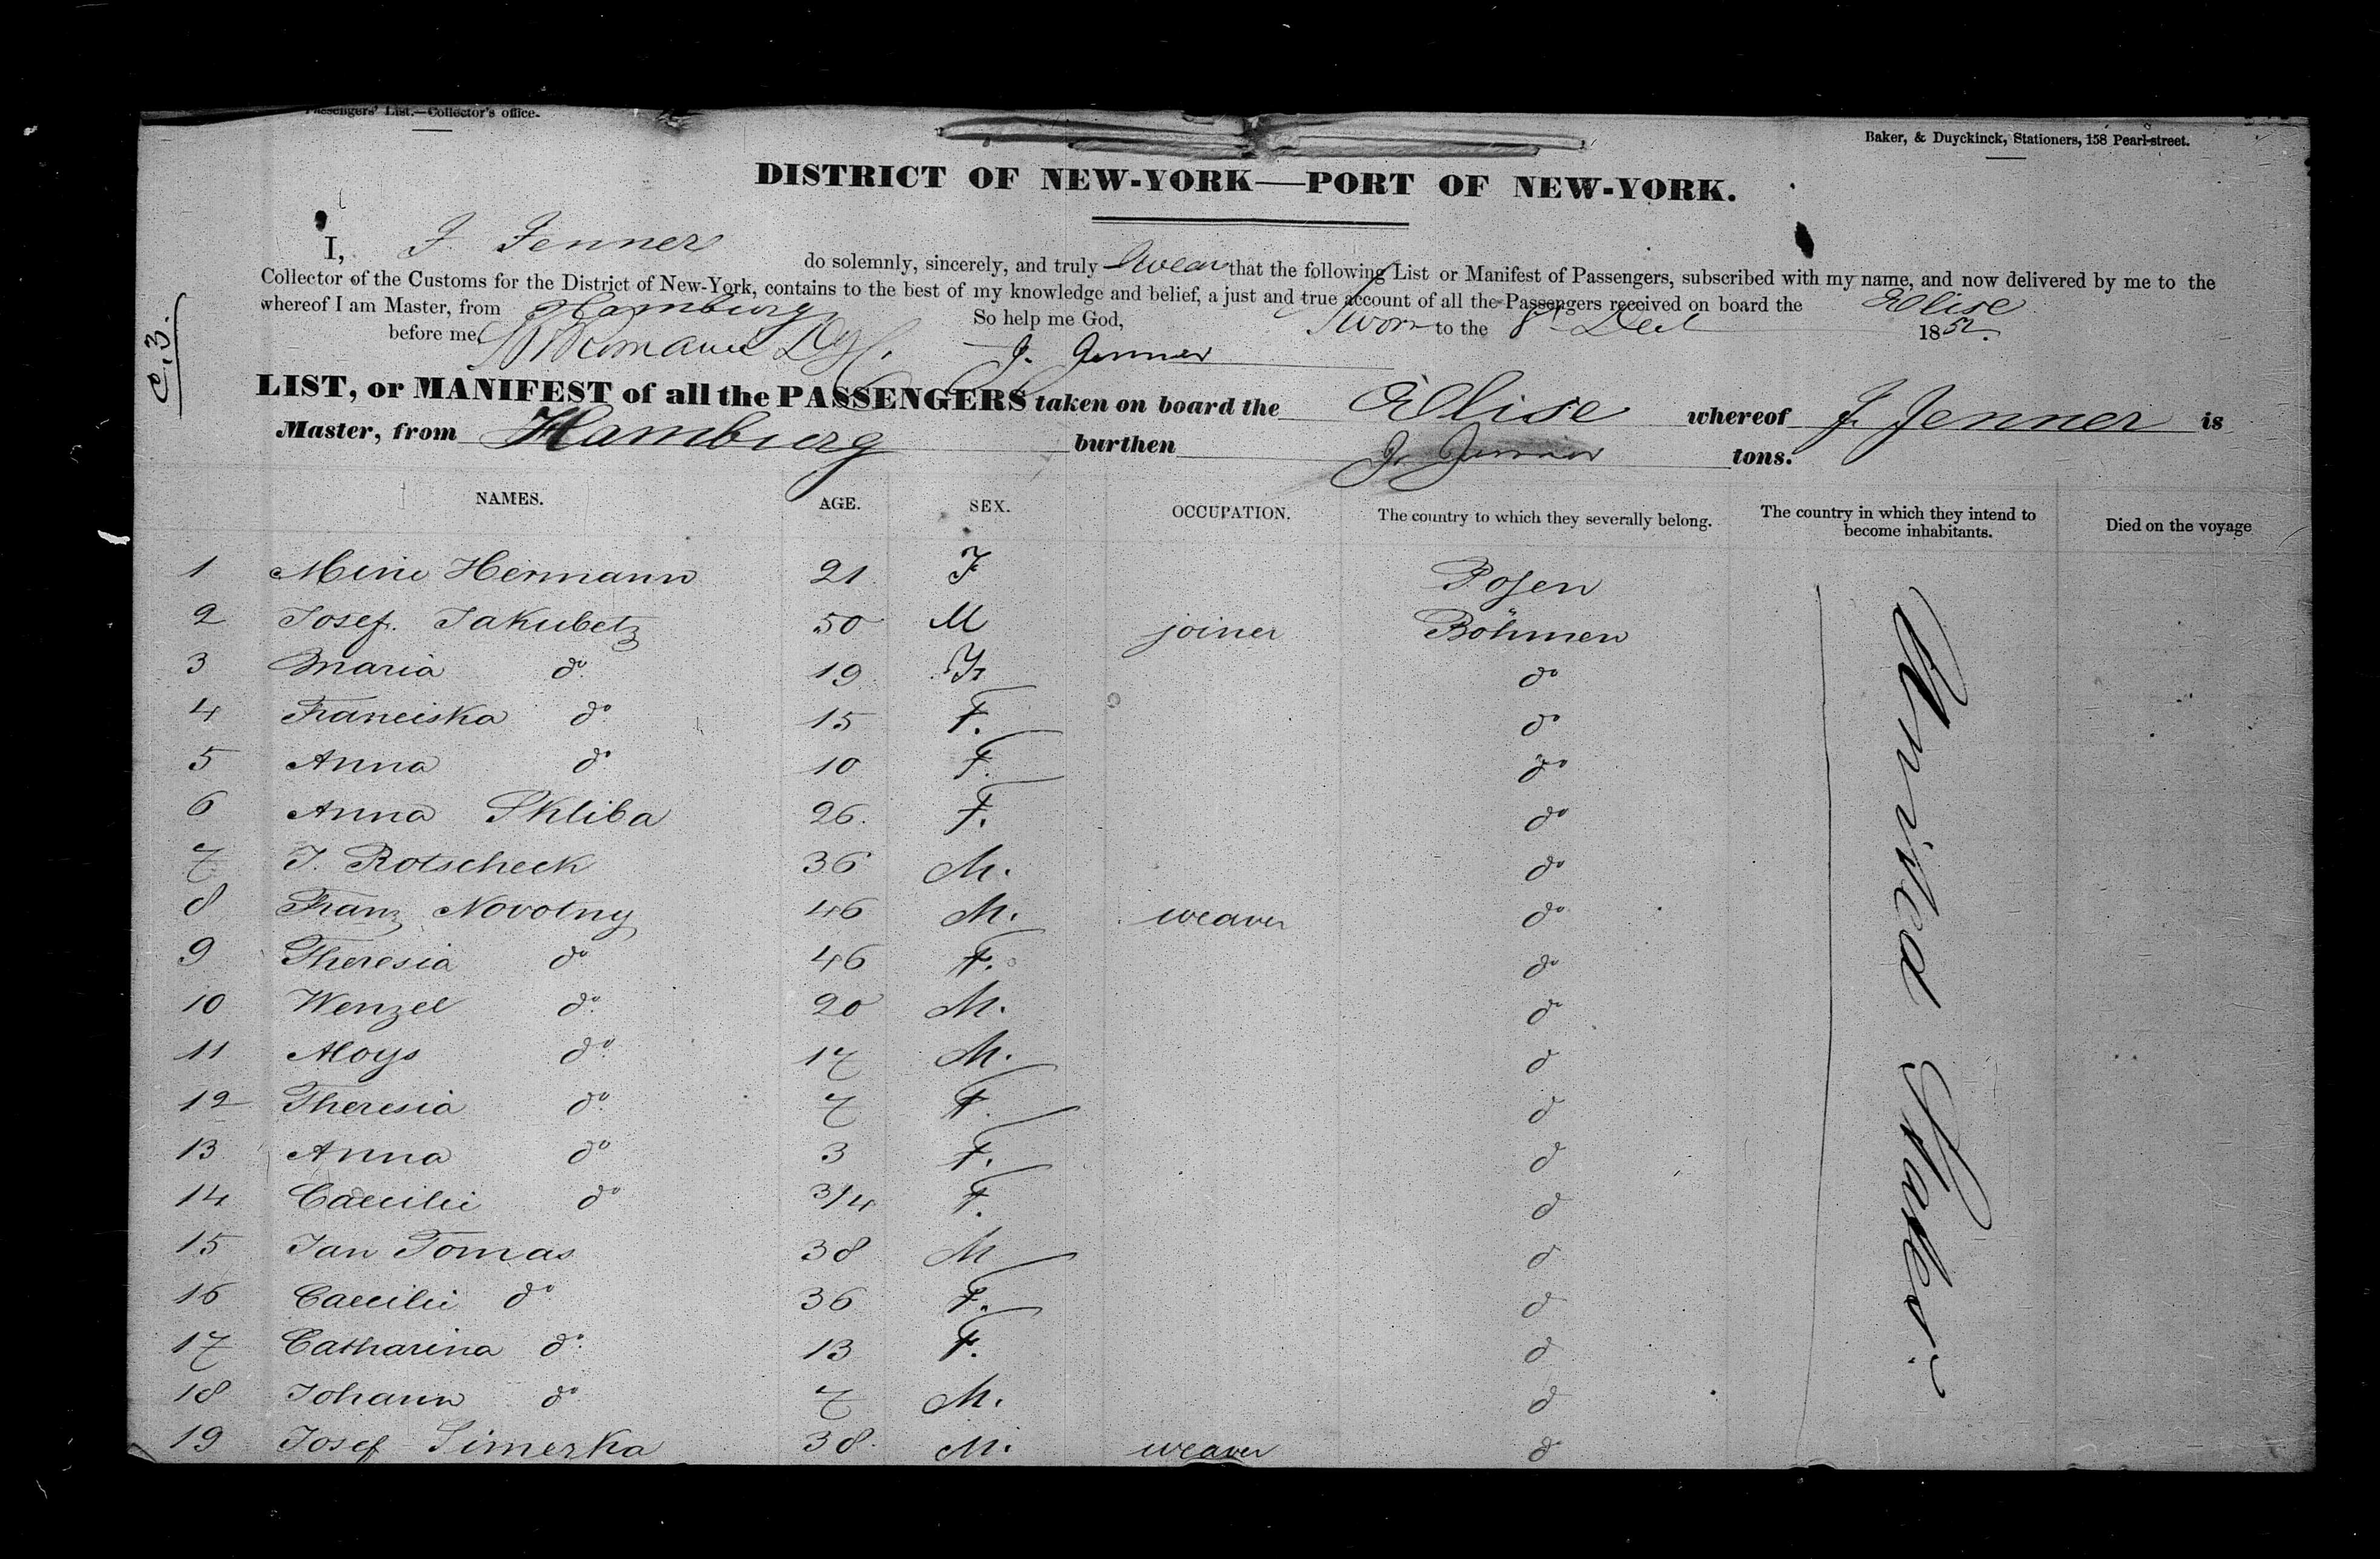 Passengers' List.—Collector's office.
Baker, & Duyckinck, Stationers, 158 Pearl-street.
DISTRICT OF NEW-YORK—PORT OF NEW-YORK.
I, J. Jenner do solemnly, sincerely, and truly Swear that the following List or Manifest of Passengers, subscribed with my name, and now delivered by me to the
Collector of the Customs for the District of New-York, contains to the best of my knowledge and belief, a just and true account of all the Passengers received on board the Elise
whereof I am Master, from Hamburg So help me God, Sworn to the 8th Dec 1852.
before me J. Jenner
C.3.
LIST, or MANIFEST of all the PASSENGERS taken on board the Elise whereof J. Jenner is
Master, from Hamburg burthen J. Jenner tons.
NAMES. AGE. SEX. OCCUPATION. The country to which they severally belong. The country in which they intend to become inhabitants. Died on the voyage
1 Mine Hermann 21 F Posen
2 Josef. Jakubetz 50 M joiner Böhmen
3 Maria do. 19 F. do
4 Franciska do. 15 F. do
5 Anna do. 10 F. do
6 Anna Skliba 26. F. do
7 J. Rotscheck 36 M. do
8 Franz Novotny 46 M. weaver do
9 Theresia do 46 F. do
10 Wenzel do. 20 M. do
11 Aloys do. 17 M. d
12 Theresia do. 7 F. d
13 Anna do 3 F. d
14 Caecilie do 3/4 F. d
15 Jan Tomas 38 M d
16 Caecilie do 36 F. d
17 Catharina do. 13 F. d
18 Johann do 7 M. d
19 Josef Simerka 38. M. weaver d
United States.